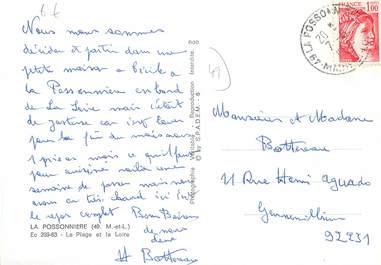 Nous nous sommes
décidés et partir dans une
petite maison a
la Possonnière en bord
de La Loire mais c'était
de justesse car c'est
pour la fin du mois nous
voilà une
semaine de passer mais nous
avons eu très chaud ici
le repos complet Bons Baisers
de nous
deux
H Bottereau
LA POSSONNIERE (49. M.-et-L.)
Ec 293-63 - La Plage et la Loire
Photographie Véritable - Reproduction Interdite.
© by S.P.A.D.E.M. - 6
LA POSSONNIÈRE
49 - MAINE
FRANCE
1,00
Monsieur et Madame
Bottereau
21 Rue Henri Aguado
Gennevilliers
92231